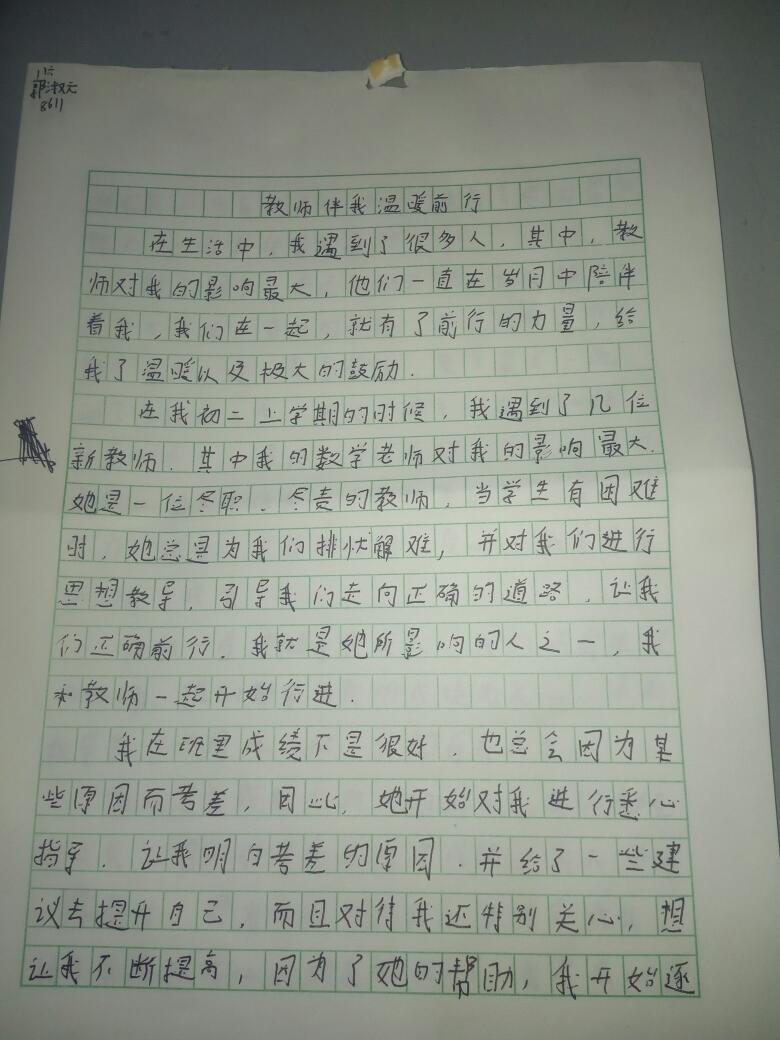 郭淑元
8611
教师伴我温暖前行
在生活中,我遇到了很多人.其中,教
师对我的影响最大,他们一直在岁月中陪伴
着我,我们在一起,就有了前行的力量,给
我了温暖以及极大的鼓励.
在我初二上学期的时候,我遇到了几位
新教师.其中我的数学老师对我的影响最大.
她是一位尽职.尽责的教师,当学生有困难
时,她总是为我们排忧解难,并对我们进行
思想教导,引导我们走向正确的道路,让我
们正确前行.我就是她所影响的人之一,我
和教师一起开始行进.
我在班里成绩不是很好.也总会因为某
些原因而考差,因此,她开始对我进行悉心
指导.让我明白考差的原因.并给了一些建
议去提升自己,而且对待我还特别关心,想
让我不断提高,因为了她的帮助,我开始逐